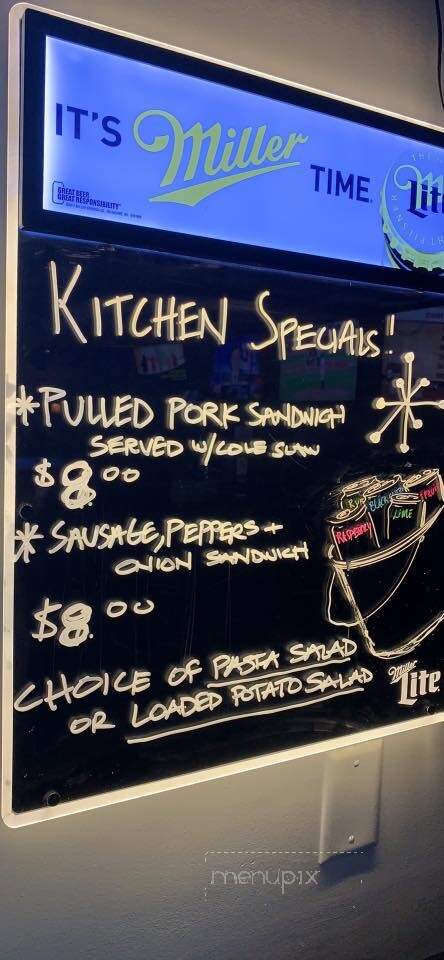 IT'S Miller TIME.
Lit
GREAT BEER
GREAT RESPONSIBILITY
KITCHEN SPECIALS!
*PULLED PORK SANDWICH
SERVED W/COLE SLAW
$8.00
* SAUSAGE, PEPPERS +
ONION SANDWICH
$8.00
RASPBERRY
BLACK
LIME
CHOICE OF PASTA SALAD
OR LOADED POTATO SALAD
Miller
Lite
menupix